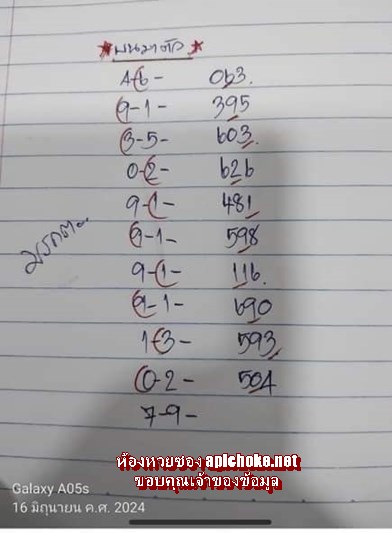 ★บนมาตัว★
4-6- 063.
9-1- 395
3-5- 603
0-2- 626
9-1- 481
9-1- 598
9-1- 116.
9-1- 690
1-3- 593
0-2- 504
7-9-
ห้องหวยซอง apichoke.net
ขอบคุณเจ้าของข้อมูล
Galaxy A05s
16 มิถุนายน ค.ศ. 2024